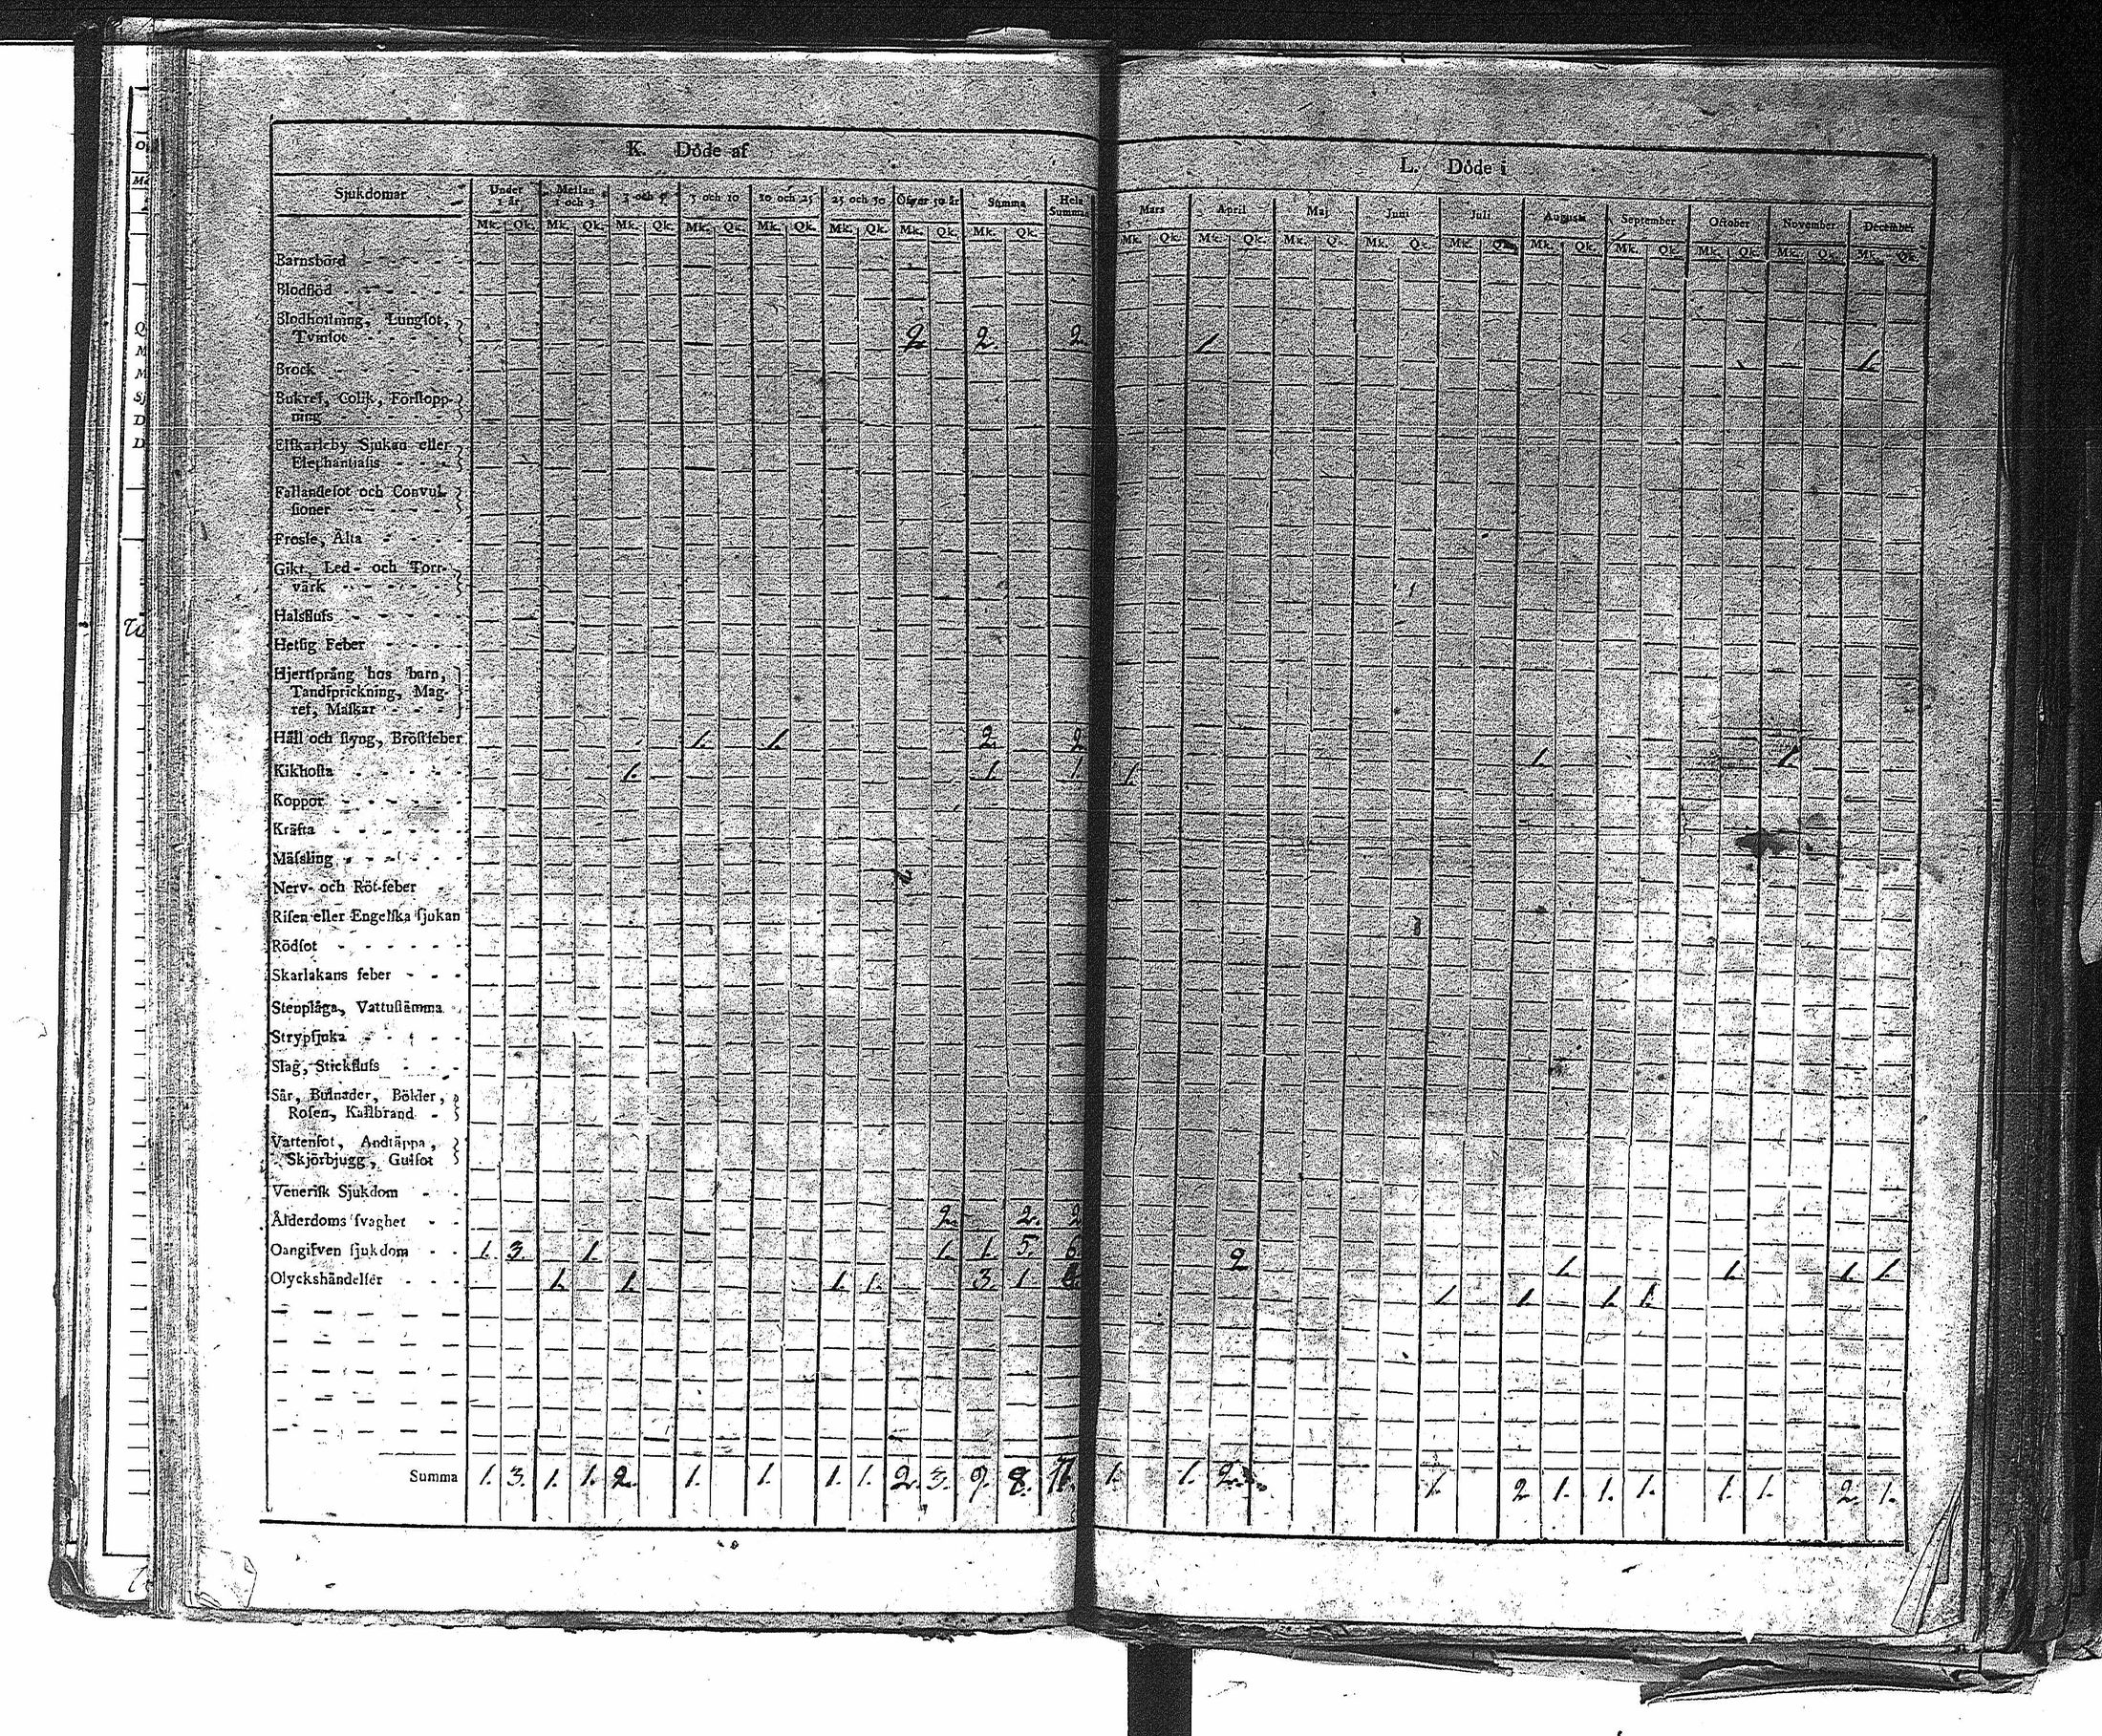 K. Döde af
Sjukdomar Under 1 år Mellan 1 och 3 3 och 5 5 och 10 10 och 25 25 och 50 Öfver 50 år Summa Hela Summa
Mk. Qk. Mk. Qk. Mk. Qk. Mk. Qk. Mk. Qk. Mk. Qk. Mk. Qk. Mk. Qk.
Barnsbörd
Blodflöd
Blodhostning, Lungſot,
Tvinſot 2. 2. 2.
Brock
Bukref, Colik, Förſtopp-
ning
Elfkarleby Sjukan eller
Elephantiaſis
Fallandeſot och Convul-
ſioner
Frosſe, Älta
Gikt, Led- och Torr-
värk
Halsfluſs
Hetſig Feber
Hjertſprång hos barn,
Tandſprickning, Mag-
ref, Maſkar
Håll och ſtyng, Bröſtfeber 1. 1. 2. 2.
Kikhoſta 1. 1. 1
Koppor
Kräfta
Mäſsling
Nerv- och Röt-feber
Riſen eller Engelſka ſjukan
Rödſot
Skarlakans feber
Stenplåga, Vattuſtämma
Strypſjuka
Slag, Stickfluſs
Sår, Bulnader, Bölder,
Roſen, Kallbrand
Vattenſot, Andtäppa,
Skjörbjugg, Gulſot
Veneriſk Sjukdom
Ålderdoms ſvaghet 2. 2. 2
Oangifven ſjukdom 1. 3. 1. 1. 1. 5. 6
Olyckshändelſer 1. 1. 1. 1. 3. 1.
Summa 1. 3. 1. 1. 2. 1. 1. 1. 1. 2. 3. 9. 8. 17.
L. Döde i
Mars April Maj Juni Juli Auguſti September October November December
Mk. Qk. Mk. Qk. Mk. Qk. Mk. Qk. Mk. Qk. Mk. Qk. Mk. Qk. Mk. Qk. Mk. Qk. Mk. Qk.
1. 1.
1. 1
1.
2 1. 1. 1. 1.
1. 1. 1. 1.
1. 1. 2. 1. 2 1. 1. 1. 1. 1. 2. 1.